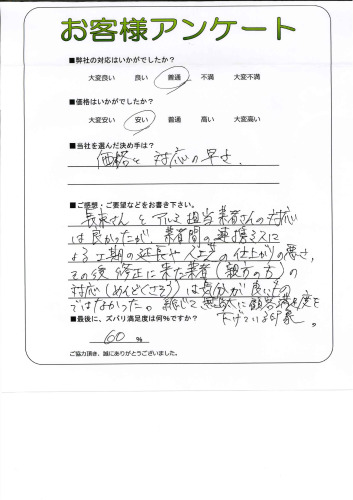 お客様アンケート
■弊社の対応はいかがでしたか？
大変良い 良い 普通 不満 大変不満
■価格はいかがでしたか？
大変安い 安い 普通 高い 大変高い
■当社を選んだ決め手は？
価格と対応の早さ
■ご感想・ご要望などをお書き下さい。
長束さんとアルミ担当業者さんの対応
は良かったが、業者間の連携ミスに
よる工期の延長や 人工芝の仕上がりの悪さ、
その後 修正に来た業者（親方の方）の
対応（めんどくさそう）は気分が良いもの
ではなかった。総じて無駄に顧客満足度を
下げている印象。
■最後に、ズバリ満足度は何%ですか？
60 %
ご協力頂き、誠にありがとうございました。